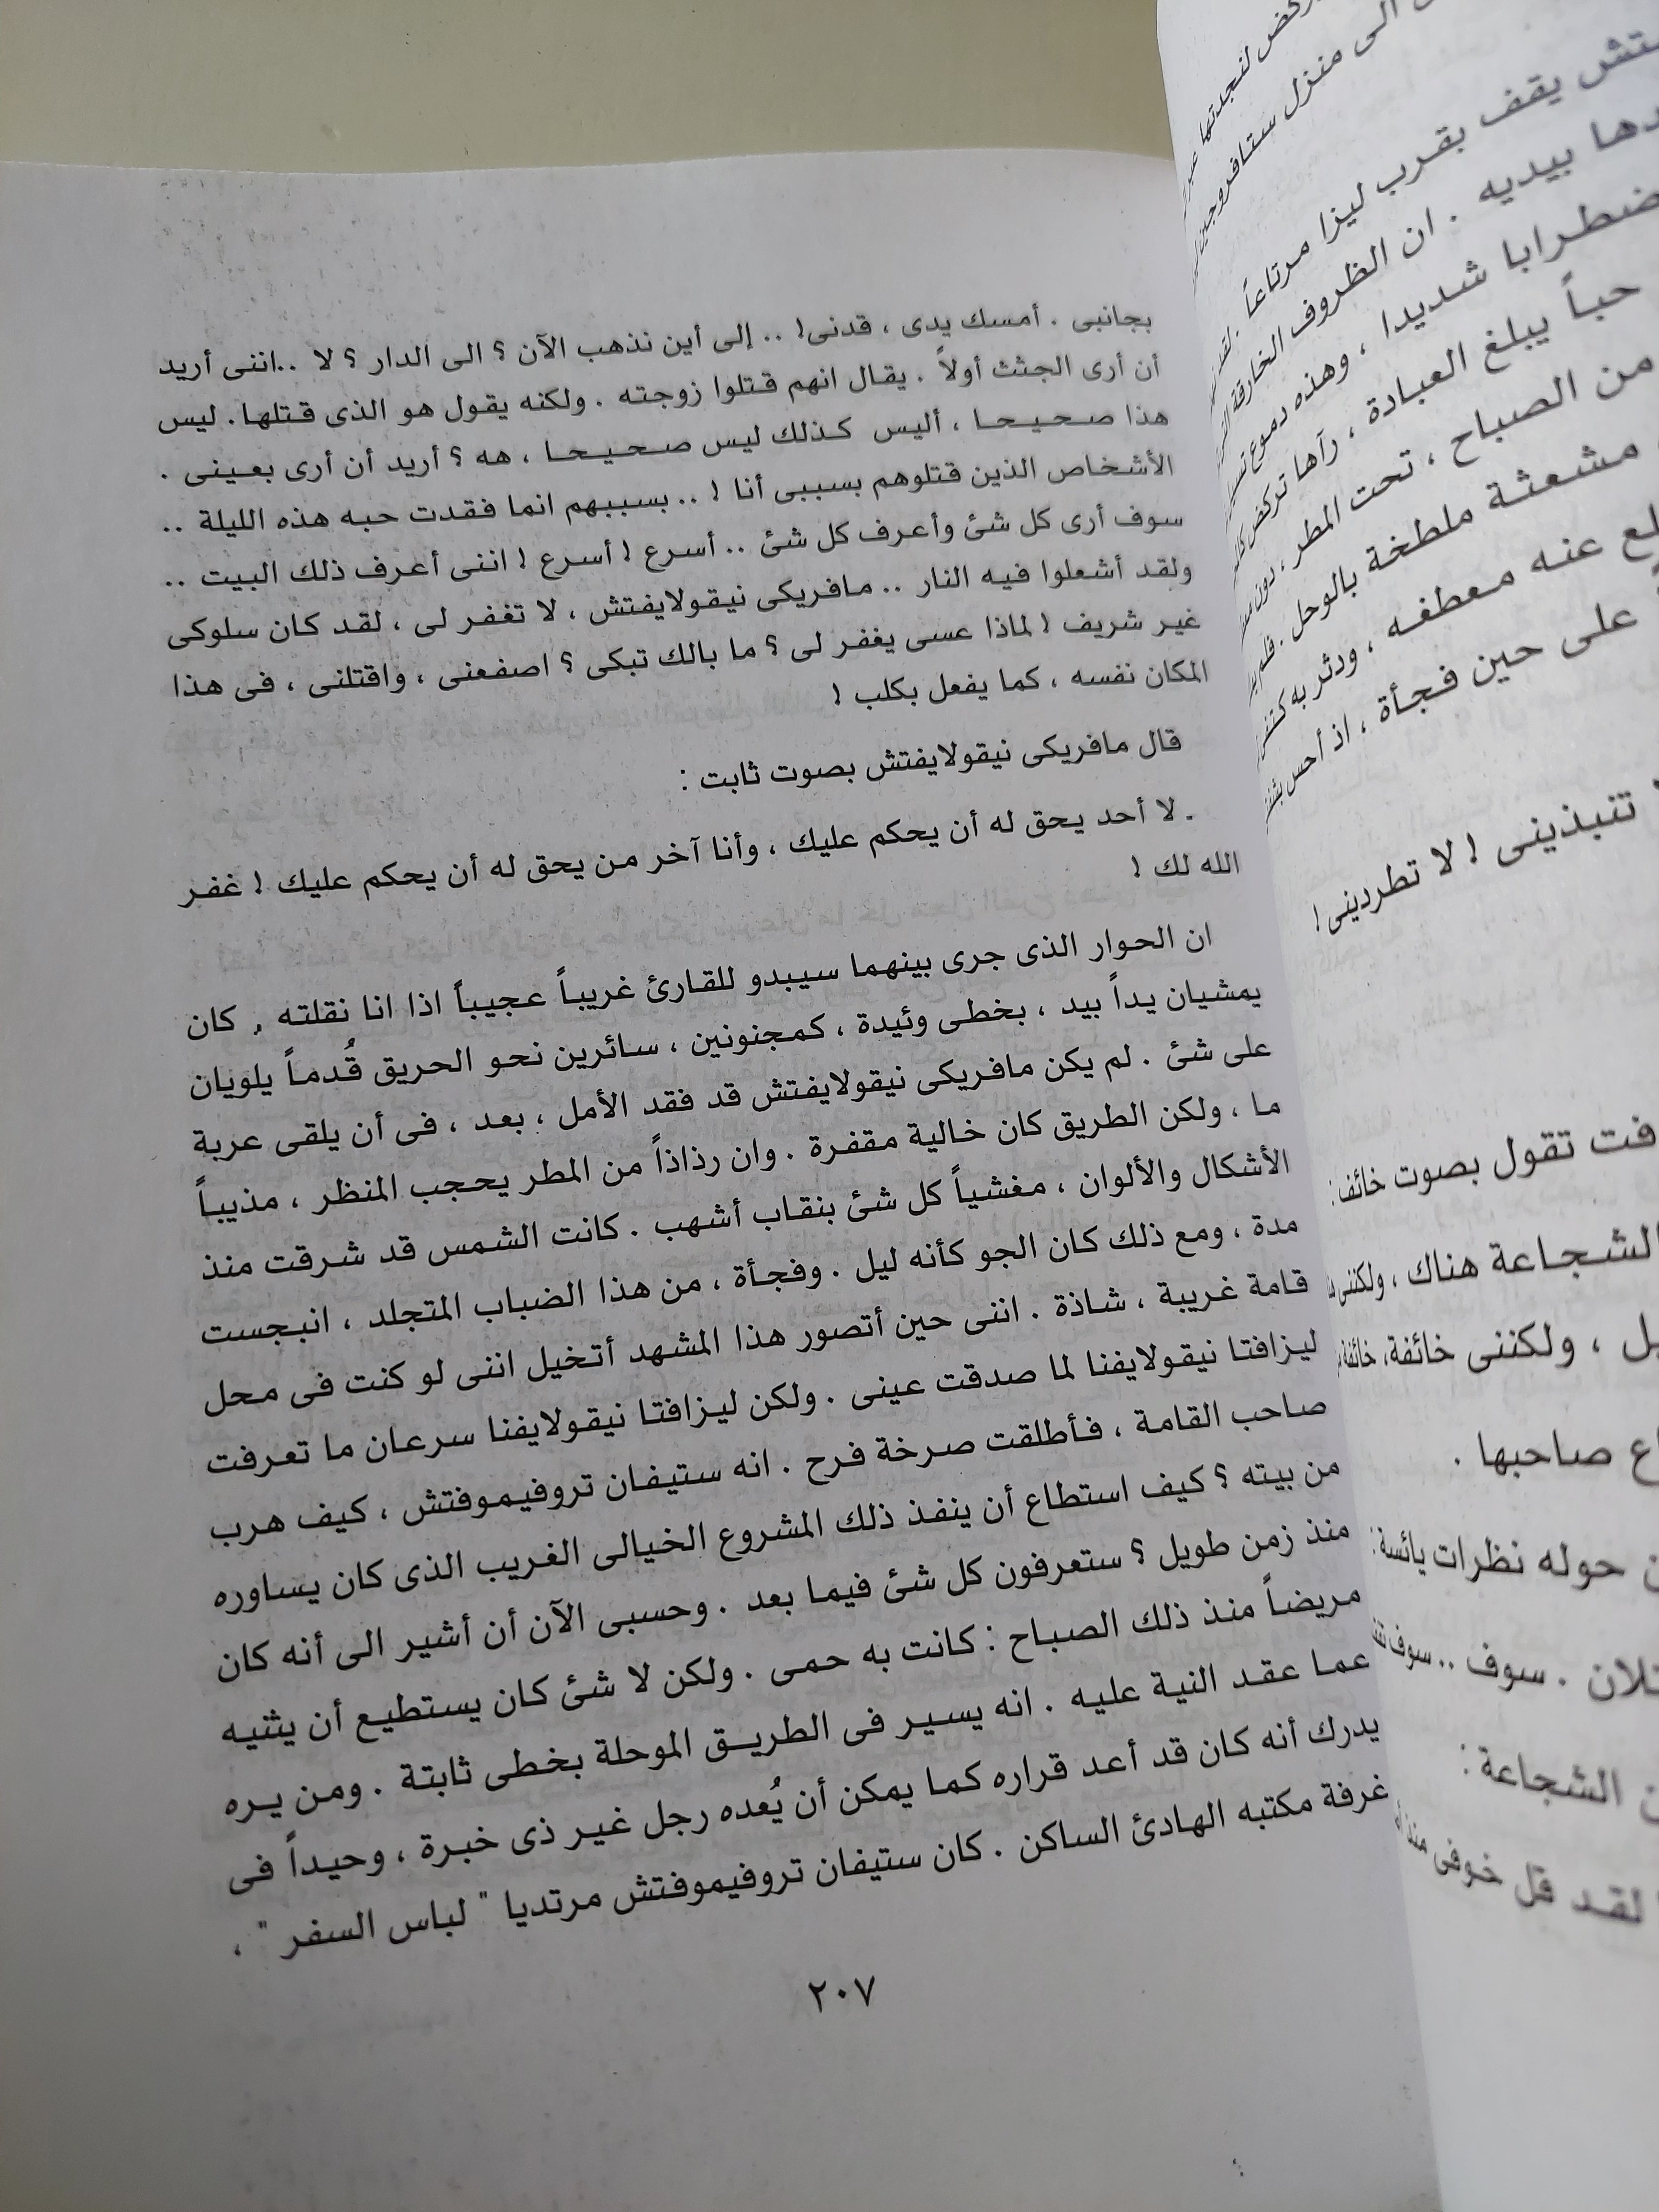 بجانبى . أمسك يدى ، قدنى! .. إلى أين نذهب الآن ؟ الى الدار ؟ لا ..اننى أريد
أن أرى الجثث أولاً . يقال انهم قتلوا زوجته . ولكنه يقول هو الذى قتلها. ليس
هذا صحيحا ، أليس كذلك ليس صحيحا ، هه ؟ أريد أن أرى بعينى .
الأشخاص الذين قتلوهم بسببى أنا ! .. بسببهم انما فقدت حبه هذه الليلة ..
سوف أرى كل شئ وأعرف كل شئ .. أسرع ! أسرع ! اننى أعرف ذلك البيت ..
ولقد أشعلوا فيه النار .. مافريكى نيقولايفتش ، لا تغفر لى ، لقد كان سلوكى
غير شريف ! لماذا عسى يغفر لى ؟ ما بالك تبكى ؟ اصفعنى ، واقتلنى ، فى هذا
المكان نفسه ، كما يفعل بكلب !
قال مافريكى نيقولايفتش بصوت ثابت :
ـ لا أحد يحق له أن يحكم عليك ، وأنا آخر من يحق له أن يحكم عليك ! غفر
الله لك !
ان الحوار الذى جرى بينهما سيبدو للقارئ غريباً عجيباً اذا انا نقلته . كان
يمشيان يداً بيد ، بخطى وئيدة ، كمجنونين ، سائرين نحو الحريق قُدماً يلويان
على شئ . لم يكن مافريكى نيقولايفتش قد فقد الأمل ، بعد ، فى أن يلقى عربة
ما ، ولكن الطريق كان خالية مقفرة . وان رذاذاً من المطر يحجب المنظر ، مذيباً
الأشكال والألوان ، مغشياً كل شئ بنقاب أشهب . كانت الشمس قد شرقت منذ
مدة ، ومع ذلك كان الجو كأنه ليل . وفجأة ، من هذا الضباب المتجلد ، انبجست
قامة غريبة ، شاذة . اننى حين أتصور هذا المشهد أتخيل اننى لو كنت فى محل
ليزافتا نيقولايفنا لما صدقت عينى . ولكن ليزافتا نيقولايفنا سرعان ما تعرفت
صاحب القامة ، فأطلقت صرخة فرح . انه ستيفان تروفيموفتش ، كيف هرب
من بيته ؟ كيف استطاع أن ينفذ ذلك المشروع الخيالى الغريب الذى كان يساوره
منذ زمن طويل ؟ ستعرفون كل شئ فيما بعد . وحسبى الآن أن أشير الى أنه كان
مريضاً منذ ذلك الصباح : كانت به حمى . ولكن لا شئ كان يستطيع أن يثنيه
عما عقد النية عليه . انه يسير فى الطريق الموحلة بخطى ثابتة . ومن يره
يدرك أنه كان قد أعد قراره كما يمكن أن يُعده رجل غير ذى خبرة ، وحيداً فى
غرفة مكتبه الهادئ الساكن . كان ستيفان تروفيموفتش مرتديا " لباس السفر " ،
٢٠٧
ركض لنجدتها
الى منزل ستافروجين
يقف بقرب ليزا مرتاعاً . لقد
بيديه . ان الظروف الخارقة
شديدا ، وهذه دموع
حباً يبلغ العبادة ، رآها تركض
من الصباح ، تحت المطر ، دون
مشعثة ملطخة بالوحل . فلم
عنه معطفه ، ودثر به
على حين فجأة ، اذ أحس
تنبذينى ! لا تطردينى !
تقول بصوت خائف :
الشجاعة هناك ، ولكنى
، ولكننى خائفة، خائفة
صاحبها .
حوله نظرات يائسة :
. سوف .. سوف
الشجاعة :
لقد قل خوفى منذ